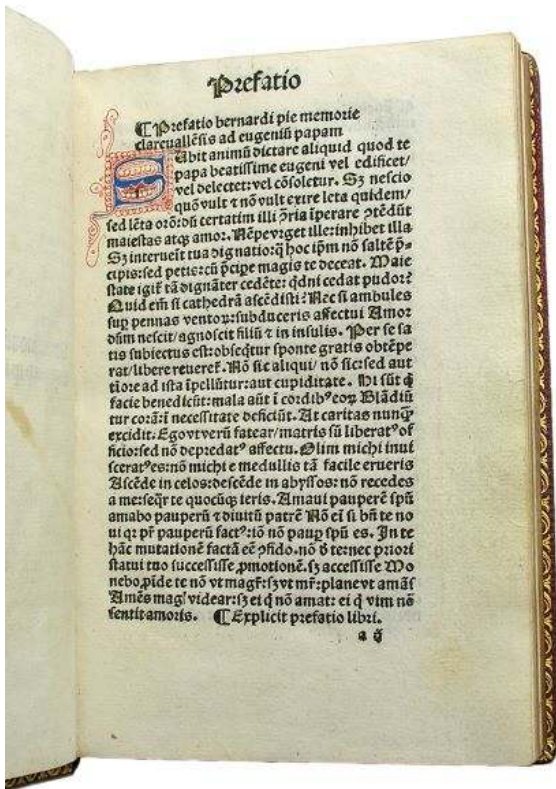 Prefatio
¶ Prefatio bernardi pie memorie
clareuallēsis ad eugeniū papam
SUbit animū dictare aliquid quod te
papa beatissime eugeni vel edificet/
vel delectet: vel cōsoletur. Sꝫ nescio
quō vult ⁊ nō vult exire leta quidem/
sed lēta orō: dū certatim illi ꝯ̄ria īperare ꝯtēdūt
maiestas atqꝫ amor. Nēpe vrget ille: inhibet illa
Sꝫ interueīt tua dignatio: q̄ hoc ip̄m nō saltē p̄-
cipis: sed petis: cū p̄cipe magis te deceat. Maie
state igit̄ tā dignāter cedēte: qdni cedat pudor?
Quid em̄ si cathedrā ascēdisti? Nec si ambules
suꝑ pennas ventoꝝ: subduceris affectui Amor
dūm nescit/ agnoscit filiū ⁊ in insulis. Per se sa
tis subiectus est: obseq̄tur sponte gratis obtēpe
rat/ libere reueret̄. Nō sic aliqui/ nō sic: sed aut
tiōre ad ista īpellūtur: aut cupiditate. Hi sūt q̄
facie benedicūt: mala aūt ī cordibꝰ eoꝝ Blādiū
tur corā: ī necessitate deficiūt. At caritas nunqꝫ
excidit. Ego vt verū fatear/ matris sū liberatꝰ of
ficio: sed nō depredatꝰ affectu. Olim michi inui
sceratꝰ es: nō michi e medullis tā facile erueris
Ascēde in celos: descēde in abyssos: nō recedes
a me: seq̄r te quocūqꝫ ieris. Amaui pauperē sp̄u
amabo pauperū ⁊ diuitū patrē Nō ei̅ si bn̄ te no
ui qꝛ pr̄ pauperū factꝰ: iō nō paup̄ sp̄u es. In te
hāc mutationē factā eē ꝯfido. nō ð te: nec priori
statui tuo successisse ꝓmotionē. sꝫ accessisse Mo
nebo ꝓīde te nō vt magr̄: sꝫ vt mr̄: plane vt amās
Amēs magꝭ videar: sꝫ ei q̄ nō amat: ei q̄ vim nō
sentit amoris. ¶ Explicit prefatio libri.
a ij